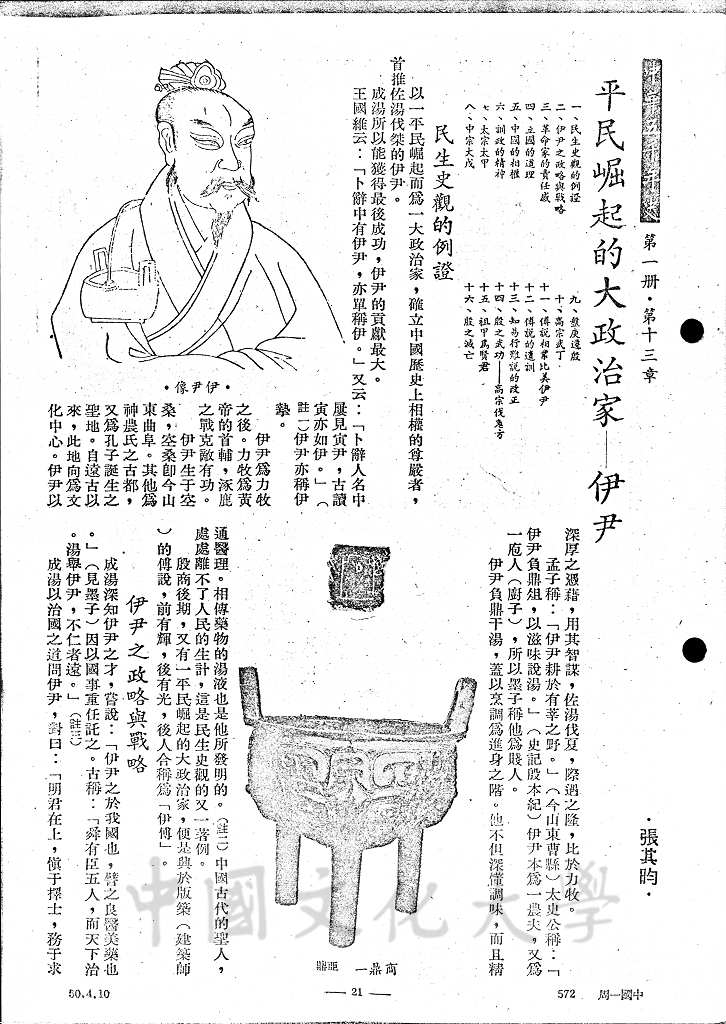 中華五千年史
第一册·第十三章
平民崛起的大政治家——伊尹
·張其昀·
一、民生史觀的例證
二、伊尹之政略與戰略
三、革命家的責任感
四、立國的道理
五、中國的相權
六、訓政的精神
七、太宗太甲
八、中宗大戊
九、盤庚遷殷
十、高宗武丁
十一、傅說相業比美伊尹
十二、傅說的遺訓
十三、知易行難說的改正
十四、殷之武功——高宗伐鬼方
十五、祖甲爲賢君
十六、殷之滅亡
民生史觀的例證
以一平民崛起而爲一大政治家，確立中國歷史上相權的尊嚴者，
首推佐湯伐桀的伊尹。
成湯所以能獲得最後成功，伊尹的貢獻最大。
王國維云：「卜辭中有伊尹，亦單稱伊。」又云：「卜辭人名中
屢見寅尹，古讀
寅亦如伊。」（
註一）伊尹亦稱伊
摯。
伊尹爲力牧
之後。力牧爲黃
帝的首輔，涿鹿
之戰克敵有功。
伊尹生于空
桑，空桑卽今山
東曲阜。其他爲
神農氏之古都，
又爲孔子誕生之
聖地。自遠古以
來，此地向爲文
化中心。伊尹以
·伊尹像·
深厚之憑藉，用其智謀，佐湯伐夏，際遇之隆，比於力牧。
孟子稱：「伊尹耕於有莘之野。」（今山東曹縣）太史公稱：「
伊尹負鼎俎，以滋味說湯。」（史記殷本紀）伊尹本爲一農夫，又爲
一庖人（廚子），所以墨子稱他爲賤人。
伊尹負鼎干湯，蓋以烹調爲進身之階。他不但深懂調味，而且精
通醫理。相傳藥物的湯液也是他所發明的。（註二）中國古代的聖人，
處處離不了人民的生計，這是民生史觀的又一著例。
殷商後期，又有一平民崛起的大政治家，便是興於版築（建築師
）的傅說，前有輝，後有光，後人合稱爲「伊傅」。
伊尹之政略與戰略
成湯深知伊尹之才，嘗說：「伊尹之於我國也，譬之良醫美藥也
。」（見墨子）因以國事重任託之。古稱：「舜有臣五人，而天下治
。湯舉伊尹，不仁者遠。」（註三）
成湯以治國之道問伊尹，對曰：「明君在上，愼于擇士，務于求
商鼎一 亞鼎
中國文化大學
50.4.10
— 21 —
572 中國一周